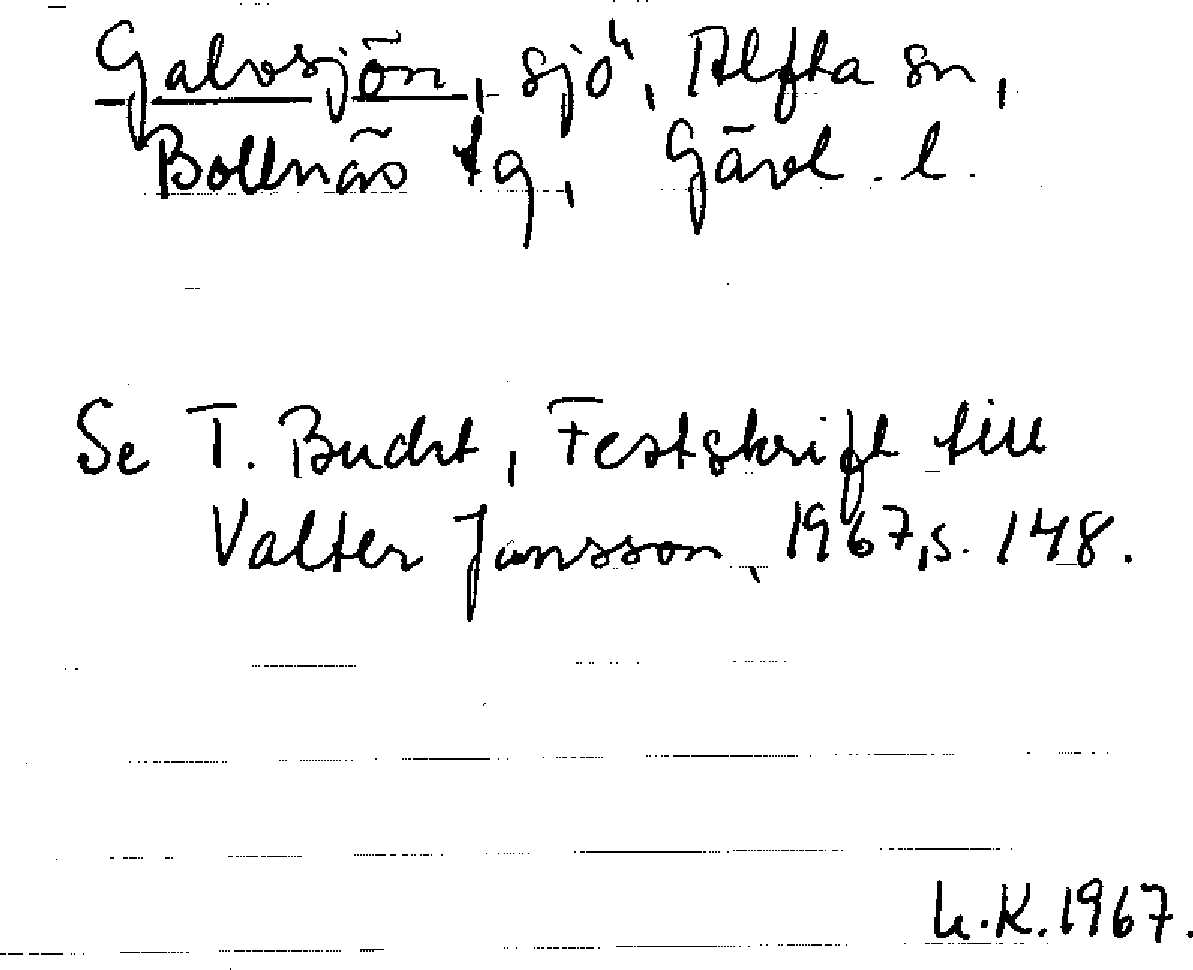 Galvsjön, sjö, Alfta sn,
Bollnäs tg, Gävl. l.
Se T. Bucht, Festskrift till
Valter Jansson, 1967, s. 148.
h.K. 1967.